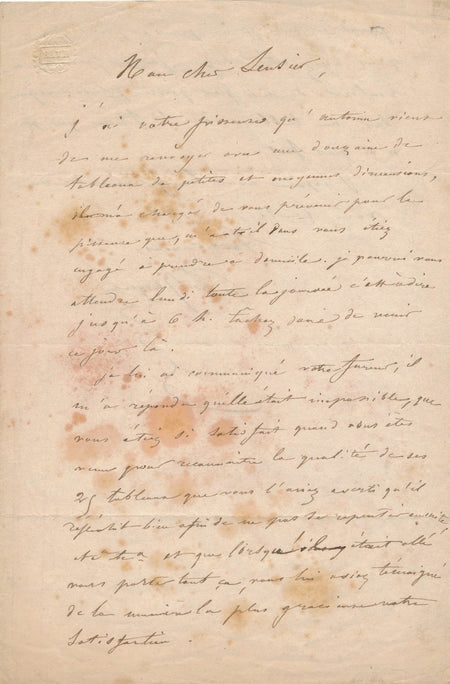 Mon cher Sensier,
j'ai votre pissenre qu' antonin vient
de me renvoyer avec une douzaine de
tableaux de petites et moyennes dimensions,
il m'a chargé de vous prevenir pour la
pisseuse que, m'a-t-il dans vous étiez
engagé à prendre à domicile. je pourrai vous
attendre lundi toute la journée c'est à dire
jusqu'à 6 h. tachez donc de venir
ce jour là.
je lui ai communiqué votre fureur, il
m'a repondu qu'elle était impossible, que
vous étiez si satisfait quand vous êtes
venu pour reconnaitre la qualité de ses
25 tableaux que vous l'aviez averti qu'il
réfléchit bien afin de ne pas se repentir ensuite
et que lorsqu' était allé
vous porter tout ça, vous lui aviez témoigné
de la manière la plus gracieuse votre
satisfaction.